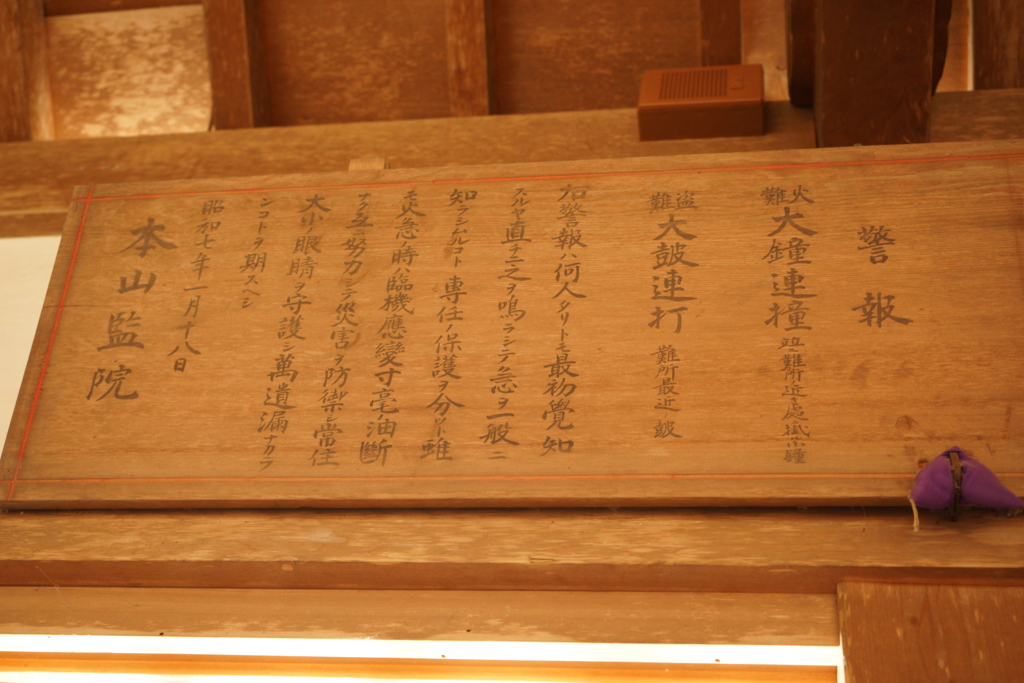 警報
火難 大鐘連撞 難所近キ處
盗難 大皷連打 難所最近ノ皷
右警報ハ何人タリトモ最初覺知
スルヤ直チニ之ヲ鳴ラシテ急ヲ一般ニ
知ラシムルコト專任ノ保護ヲ分ツト雖
モ火急ノ時ハ臨機應變寸毫ノ油斷
ナク互ニ努力シテ災害ヲ防禦シ常住
大小ノ眼睛ヲ守護シ萬遺漏ナカラ
ンコトヲ期スヘシ
昭和七年一月十八日
本山監院